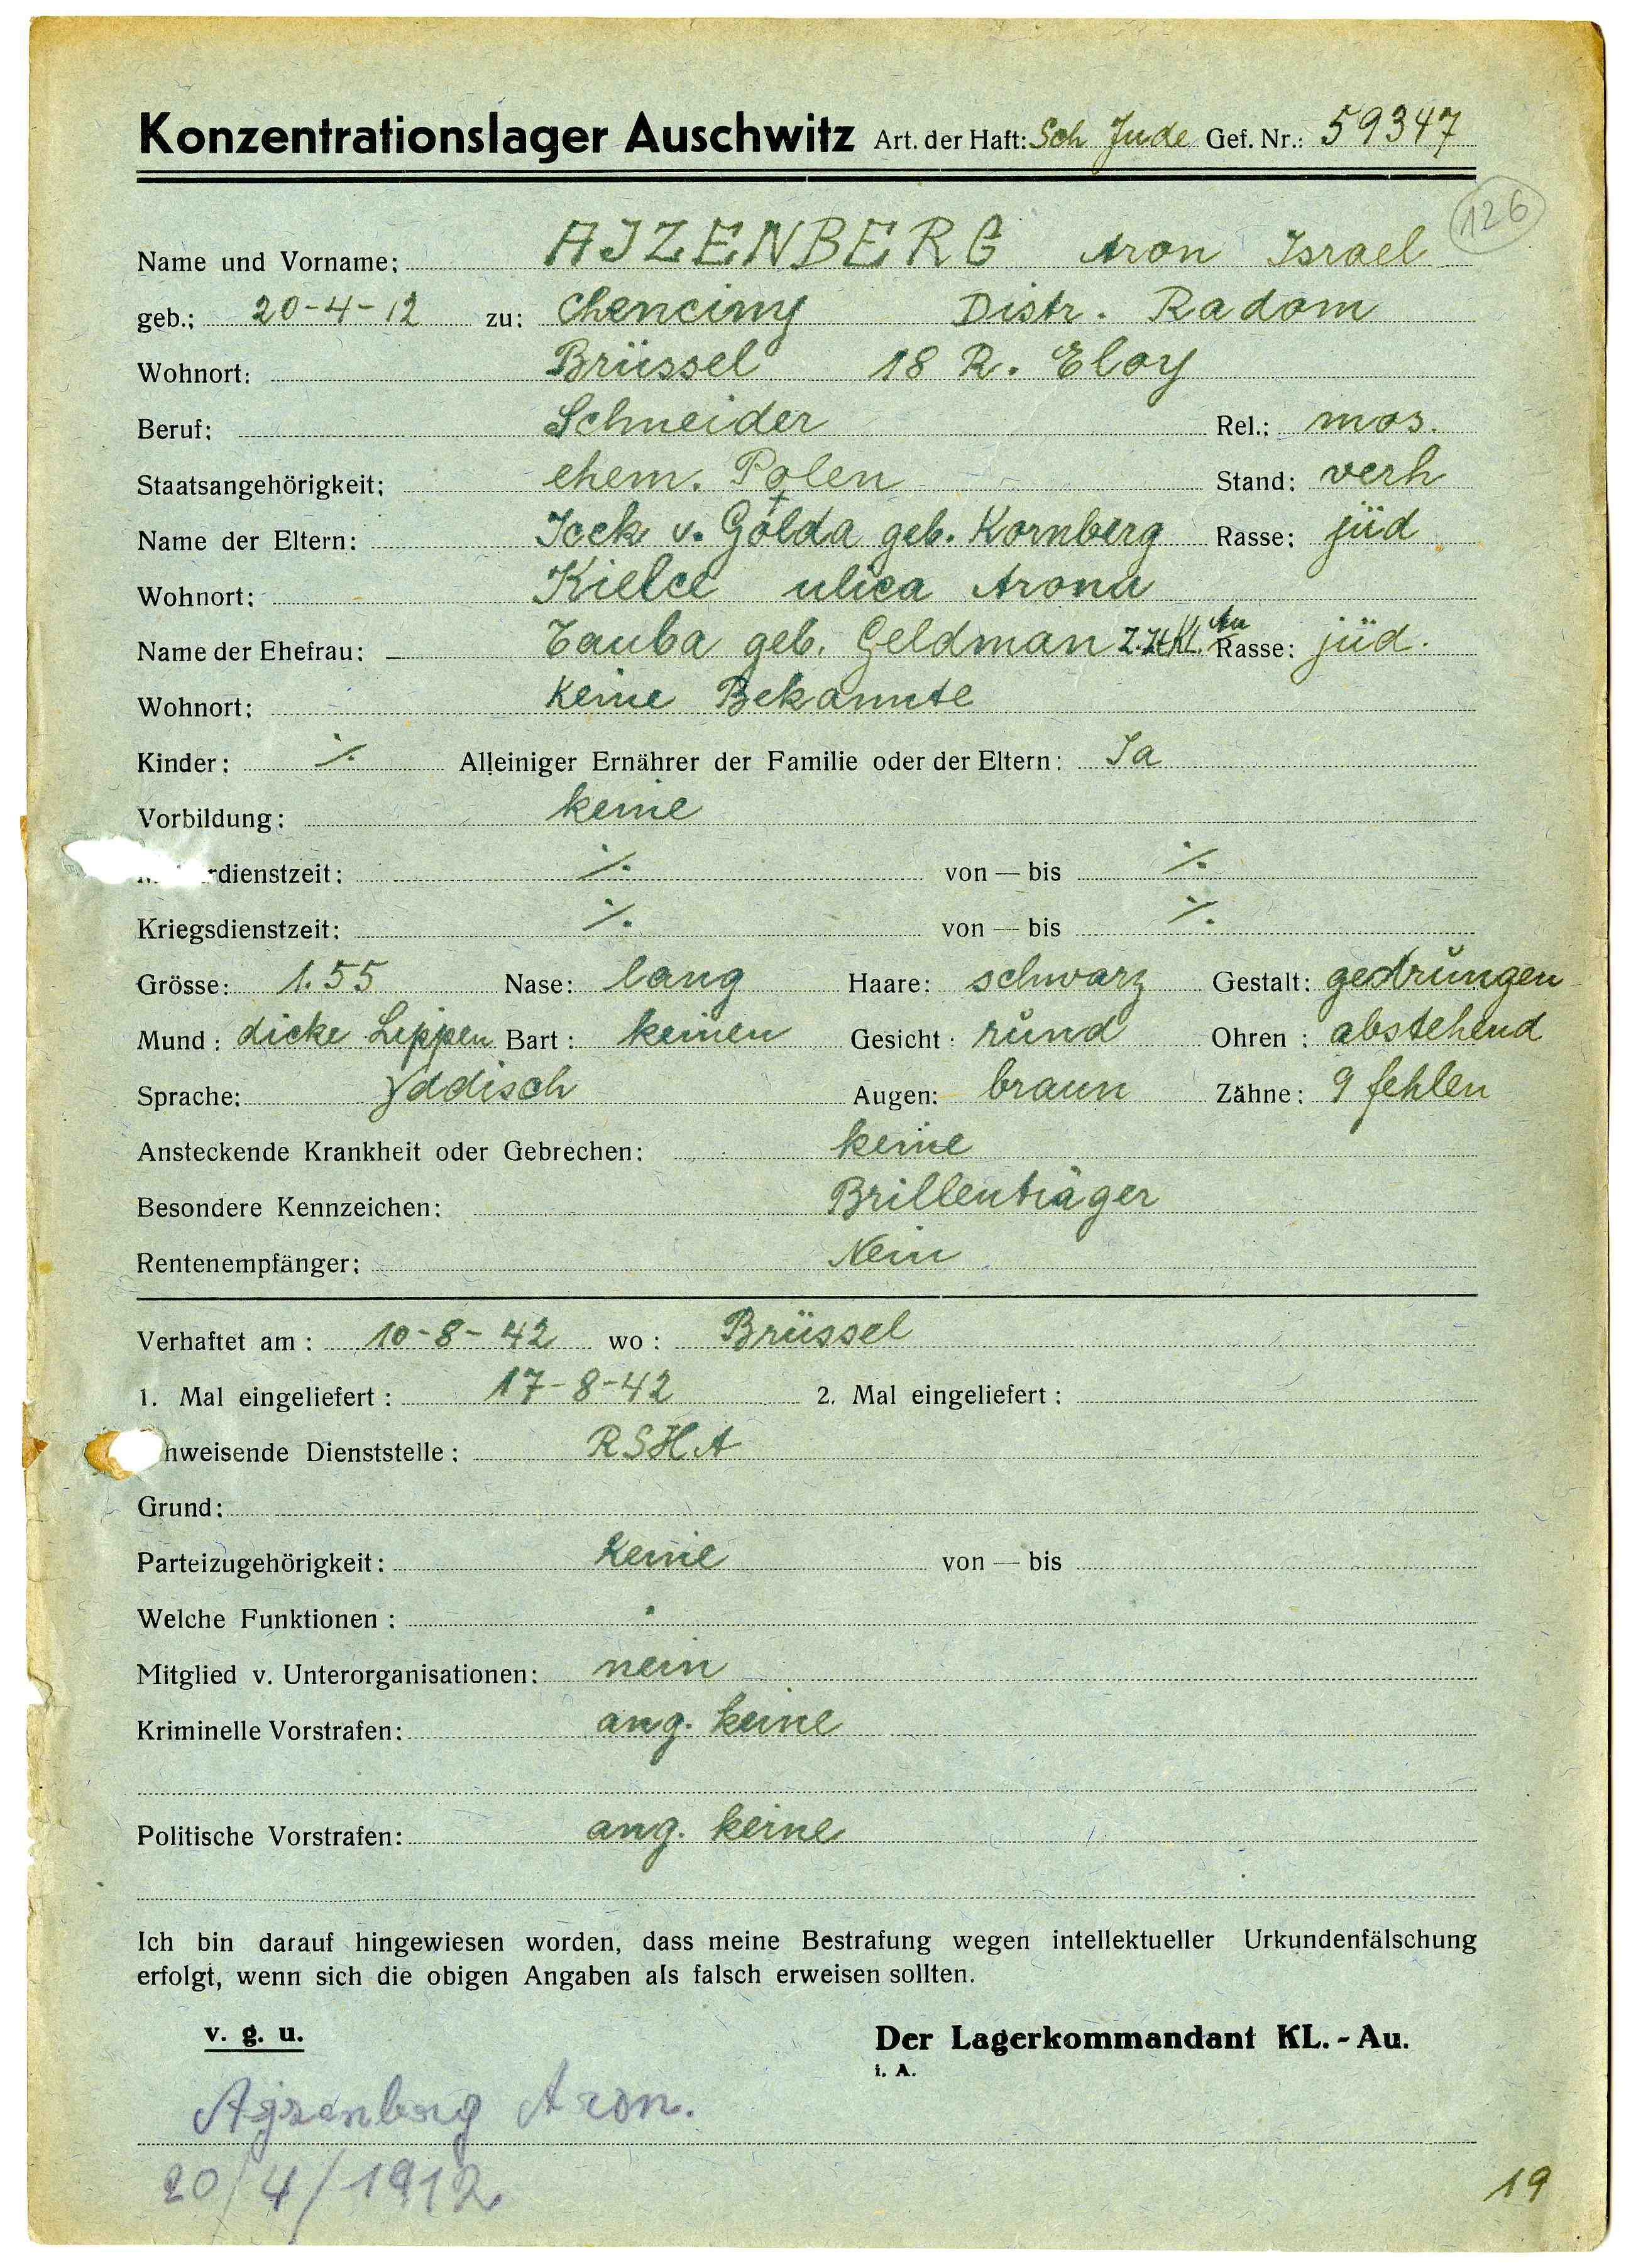 Konzentrationslager Auschwitz Art. der Haft: Sch Jude Gef. Nr.: 59347
126
Name und Vorname: AJZENBERG Aron Israel
geb.: 20-4-12 zu: Chenciny Distr. Radom
Wohnort: Brüssel 18 R. Eloy
Beruf: Schneider Rel.: mos.
Staatsangehörigkeit: ehem. Polen Stand: verh
Name der Eltern: Icek v. Golda geb. Kornberg Rasse: jüd
Wohnort: Kielce ulica Arona
Name der Ehefrau: Tauba geb. Geldman z.Zt KL. Au Rasse: jüd.
Wohnort: keine Bekannte
Kinder: ./. Alleiniger Ernährer der Familie oder der Eltern: Ja
Vorbildung: keine
rdienstzeit: ./. von — bis ./.
Kriegsdienstzeit: ./. von — bis ./.
Grösse: 1.55 Nase: lang Haare: schwarz Gestalt: gedrungen
Mund: dicke Lippen Bart: keinen Gesicht: rund Ohren: abstehend
Sprache: Yddisch Augen: braun Zähne: 9 fehlen
Ansteckende Krankheit oder Gebrechen: keine
Besondere Kennzeichen: Brillenträger
Rentenempfänger: Nein
Verhaftet am: 10-8-42 wo: Brüssel
1. Mal eingeliefert: 17-8-42 2. Mal eingeliefert:
nweisende Dienststelle: RSHA
Grund:
Parteizugehörigkeit: keine von — bis
Welche Funktionen:
Mitglied v. Unterorganisationen: nein
Kriminelle Vorstrafen: ang. keine
Politische Vorstrafen: ang. keine
Ich bin darauf hingewiesen worden, dass meine Bestrafung wegen intellektueller Urkundenfälschung
erfolgt, wenn sich die obigen Angaben als falsch erweisen sollten.
v. g. u. Der Lagerkommandant KL.-Au.
i. A.
Ajzenberg Aron.
20/4/1912
19